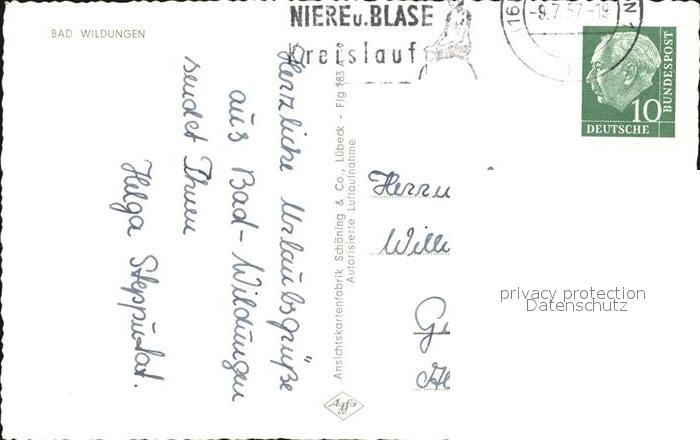 BAD WILDUNGEN
NIERE u. BLASE
Kreislauf
(16
-9.7.57-19
N
BUNDESPOST
10
DEUTSCHE
Herzliche Urlaubsgrüße
aus Bad-Wildungen
sendet Ihnen
Helga Stepputat.
Ansichtskartenfabrik Schöning & Co., Lübeck - Flg 183 A
Autorisierte Luftaufnahme
Agfa
Herrn
Willi
privacy protection
Datenschutz